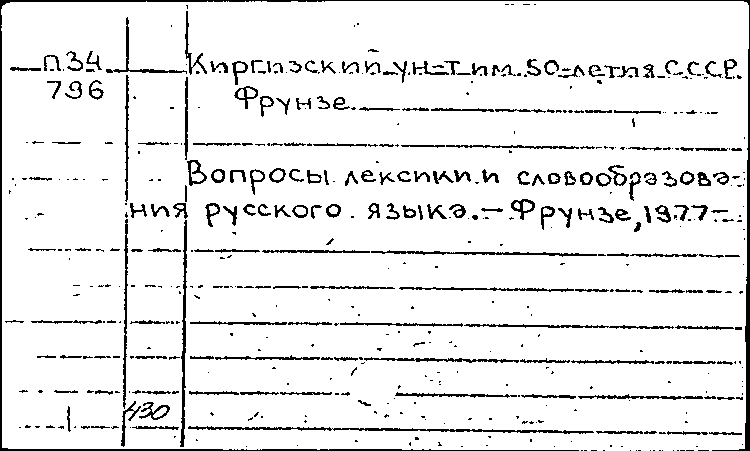 П34
796
Киргизский ун-т им. 50-летия СССР.
Фрунзе.
Вопросы лексики и словообразова-
ния русского языка. — Фрунзе, 1977-
430